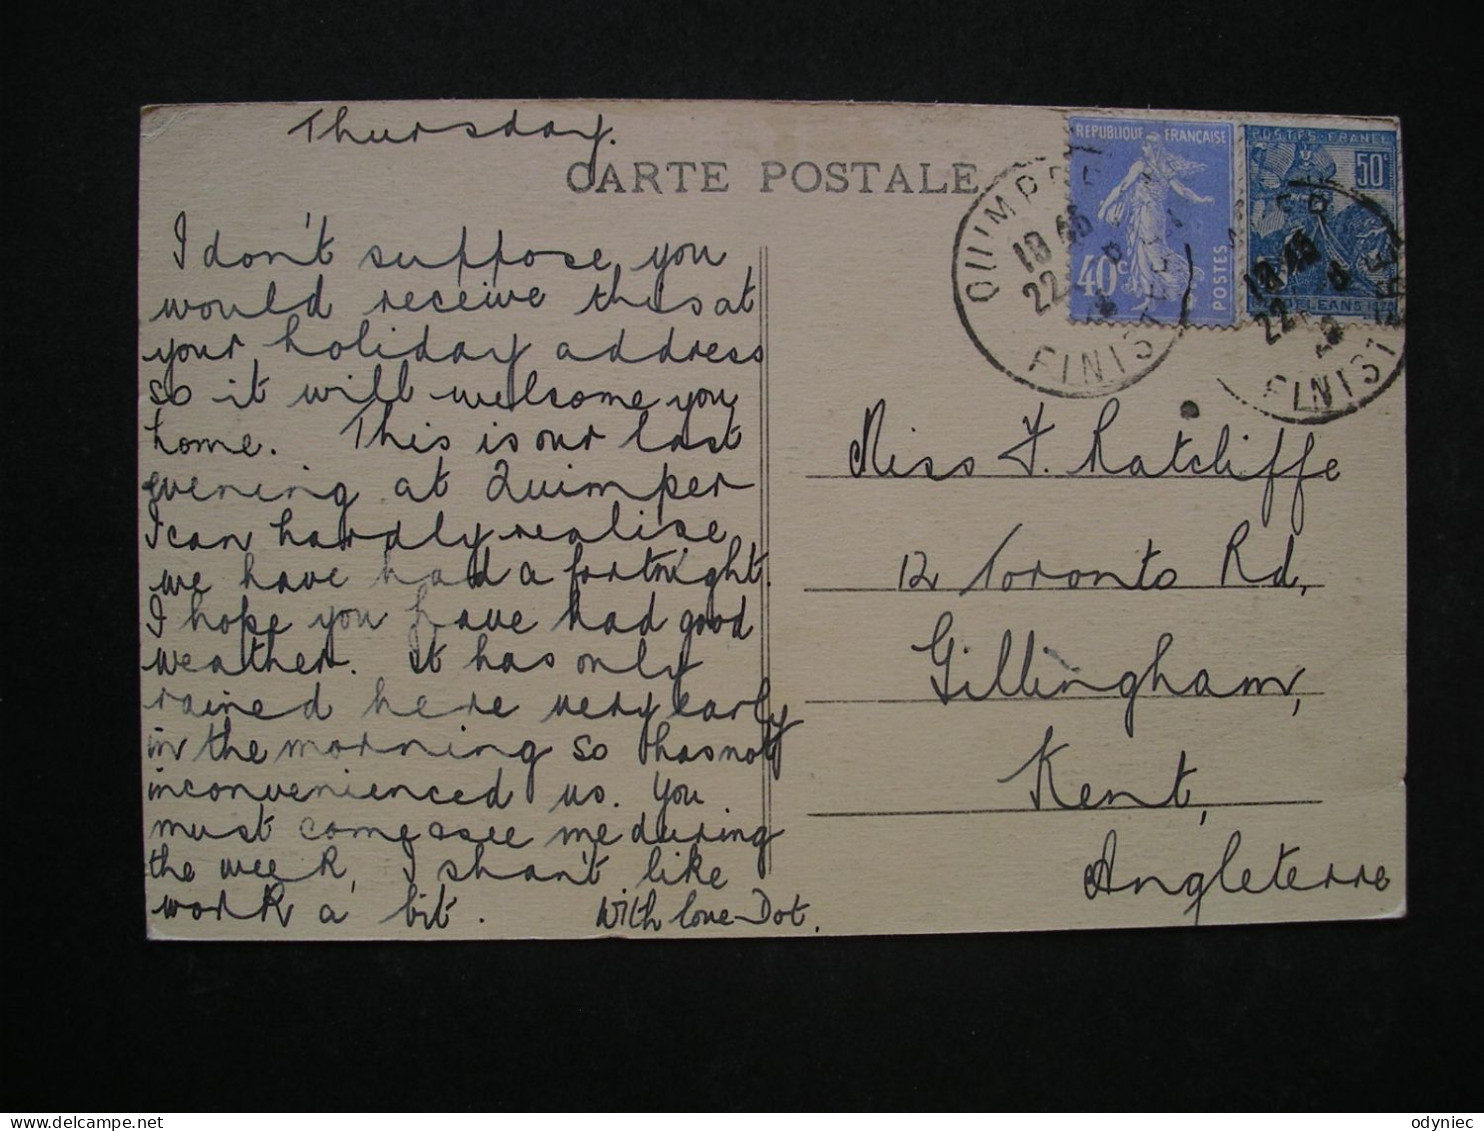 Thursday.
CARTE POSTALE
REPUBLIQUE FRANÇAISE
40c
POSTES
POSTES FRANCE
50c
QUIMPER
18 45
22
FINIST
18 45
22
FINIST
I don't suppose you
would receive this at
your holiday address
so it will welsome you
home. This is our last
evening at Quimper
I can hardly realise
we have had a fortnight.
I hope you have had good
weather. It has only
rained here very early
in the morning so has not
inconvenienced us. You
must come & see me during
the week, I shan't like
work a bit. With love - Dot.
Miss F. Ratcliffe
12 Toronto Rd,
Gillingham,
Kent,
Angleterre
odyniec